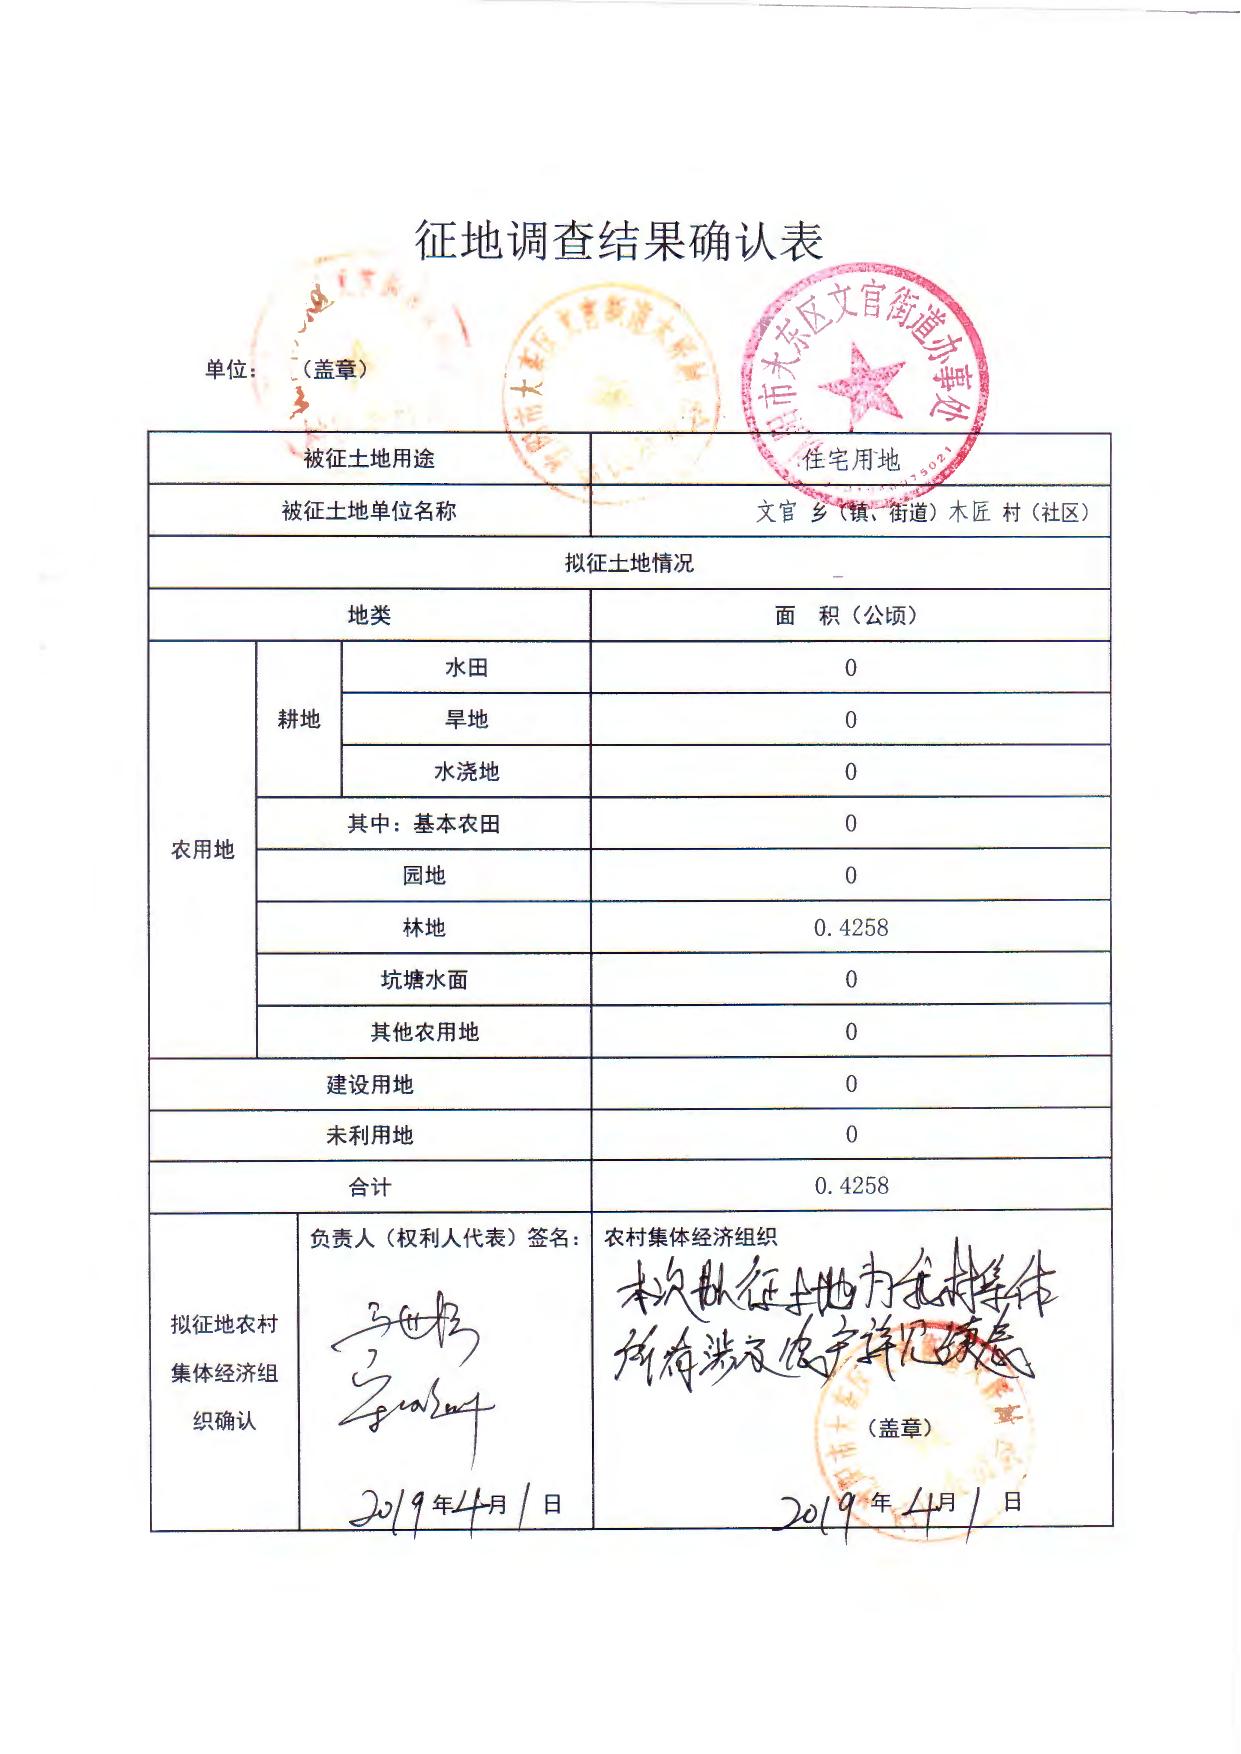 征地调查结果确认表
单位: （盖章）
沈阳市大东区文官街道办事处
被征土地用途 住宅用地
被征土地单位名称 文官 乡（镇、街道）木匠 村（社区）
拟征土地情况
地类 面 积（公顷）
农用地 耕地 水田 0
旱地 0
水浇地 0
其中: 基本农田 0
园地 0
林地 0.4258
坑塘水面 0
其他农用地 0
建设用地 0
未利用地 0
合计 0.4258
拟征地农村集体经济组织确认
负责人（权利人代表）签名:
2019年4月1日
农村集体经济组织
本次拟征土地为我村集体
所有涉及农户详见
（盖章）
2019年4月1日